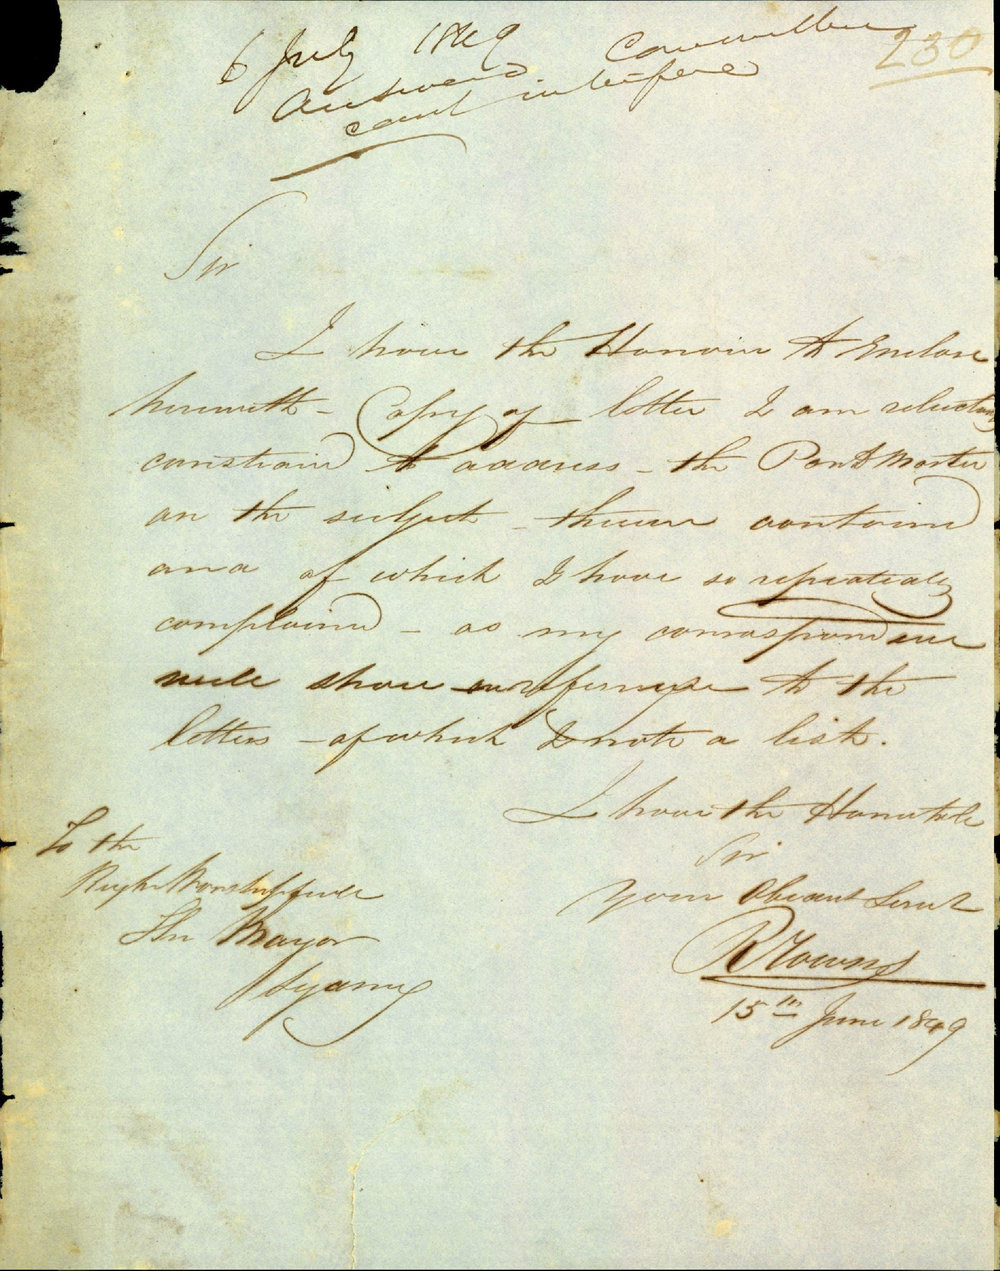 6 July 1849 Committee 230
Answered
cant interfere
Sir
I have the Honour to Enclose
herewith - Copy of letter I am reluctantly
constraind to address - the Pound Master
on the subject - therein containd
and of which I have so repeatedly
complaind - as my correspondence
will shew in reference to the
letters - of which I note a list.
I have the Honor to be
Sir
Your Obedient Servt
R Towns
15th June 1849
To the
Right Worshipfull
The Mayor
Sydney